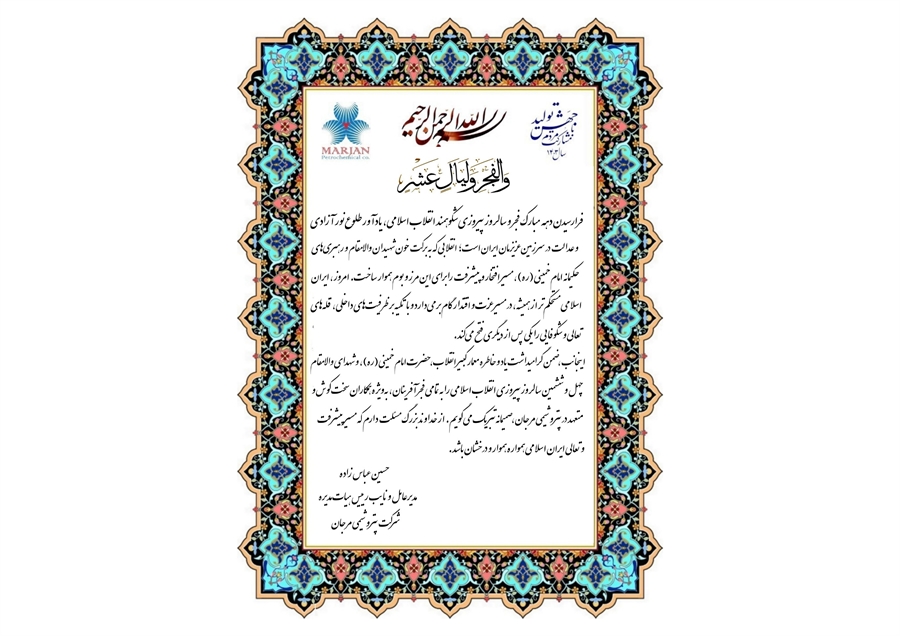 بسم الله الرحمن الرحیم
جهش تولید
با مشارکت مردم
سال ۱۴۰۳
MARJAN
Petrochemical co.
والفجر ولیال عشر
فرارسیدن دهه مبارک فجر و سالروز پیروزی شکوهمند انقلاب اسلامی، یادآور طلوع نور آزادی
و عدالت در سرزمین عزیزمان ایران است؛ انقلابی که به برکت خون شهیدان والامقام و رهبری‌های
حکیمانه امام خمینی (ره)، مسیر افتخار و پیشرفت را برای این مرز و بوم هموار ساخت. امروز، ایران
اسلامی مستحکم تر از همیشه، در مسیر عزت و اقتدار گام برمی‌دارد و با تکیه بر ظرفیت‌های داخلی، قله‌های
تعالی و شکوفایی را یکی پس از دیگری فتح می‌کند.
اینجانب، ضمن گرامیداشت یاد و خاطره معمار کبیر انقلاب، حضرت امام خمینی (ره)، و شهدای والامقام
چهل و ششمین سالروز پیروزی انقلاب اسلامی را به تمامی فجرآفرینان، به ویژه همکاران سخت کوش و
متعهد در پتروشیمی مرجان، صمیمانه تبریک می‌گویم. از خداوند بزرگ مسئلت دارم که مسیر پیشرفت
و تعالی ایران اسلامی همواره هموار و درخشان باشد.
حسین عباس زاده
مدیرعامل و نایب رییس هیات مدیره
شرکت پتروشیمی مرجان